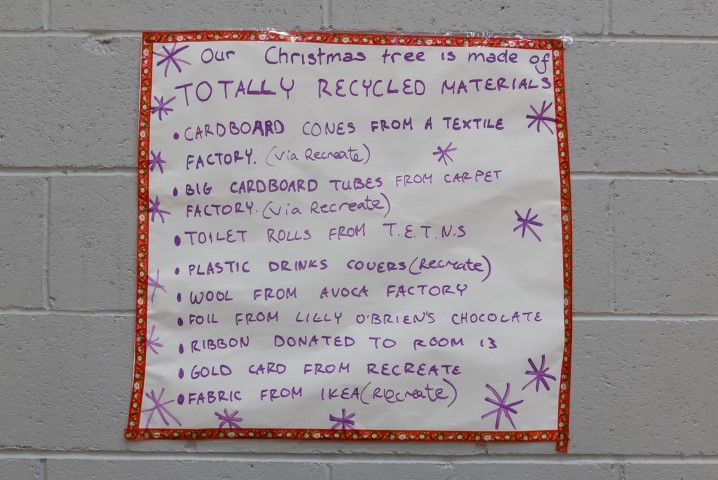 Our Christmas tree is made of
TOTALLY RECYCLED MATERIALS
• CARDBOARD CONES FROM A TEXTILE
FACTORY. (via Recreate)
• BIG CARDBOARD TUBES FROM CARPET
FACTORY. (via Recreate)
• TOILET ROLLS FROM T.E.T.N.S
• PLASTIC DRINKS COVERS (Recreate)
• WOOL FROM AVOCA FACTORY
• FOIL FROM LILLY O'BRIEN'S CHOCOLATE
• RIBBON DONATED TO ROOM 13
• GOLD CARD FROM RECREATE
• FABRIC FROM IKEA (Recreate)